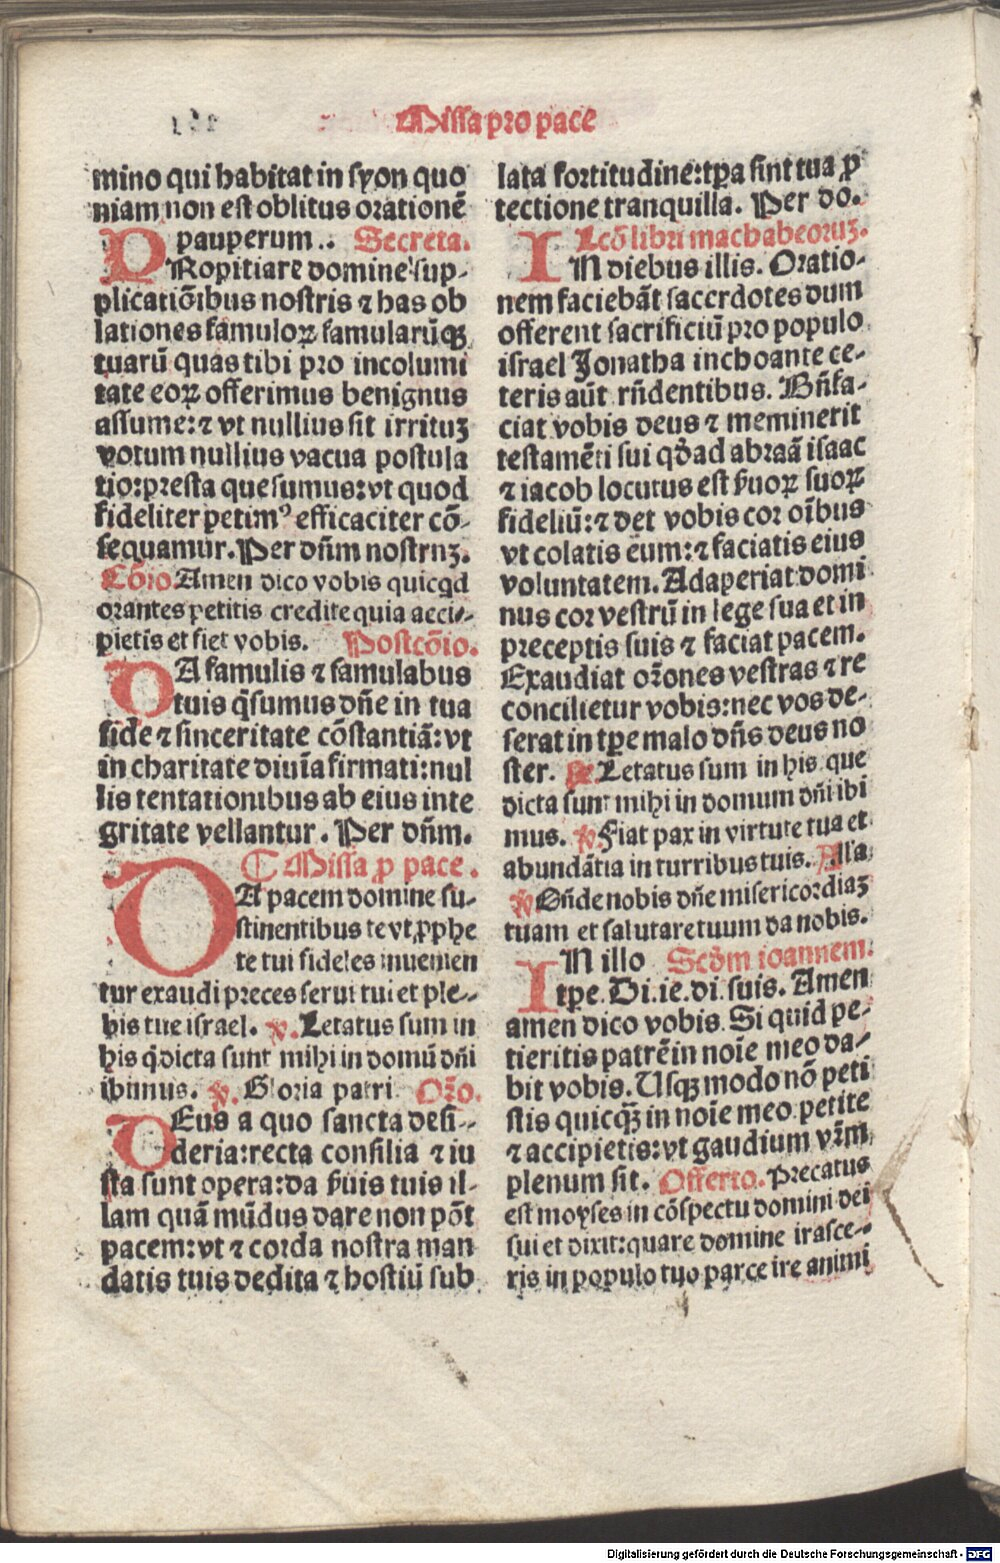 Missa pro pace
mino qui habitat in syon quo
niam non est oblitus orationē
pauperum.. Secreta.
PRopitiare domine sup-
plicatiōibus nostris ⁊ has ob
lationes famuloꝝ famularūqꝫ
tuarū quas tibi pro incolumi
tate eoꝝ offerimus benignus
assume:⁊ vt nullius sit irrituꝫ
votum nullius vacua postula
tio:presta quesumus:vt quod
fideliter petimꝰ efficaciter cō-
sequamur. Per dn̄m nostruꝫ.
Cōio. Amen dico vobis quicqd
orantes petitis credite quia acci-
pietis et fiet vobis. Postcōio.
DA famulis ⁊ famulabus
tuis q̄sumus dn̄e in tua
fide ⁊ sinceritate cōstantiā:vt
in charitate diuīa firmati:nul
lis tentationibus ab eius inte
gritate vellantur. Per dn̄m.
¶ Missa ꝓ pace.
DA pacem domine su-
stinentibus te vt ꝓphe
te tui fideles inuenien
tur exaudi preces serui tui et ple-
bis tue israel. ꝟ. Letatus sum in
his q̄ dicta sunt mihi in domū dn̄i
ibimus. ꝟ. Gloria patri Or̄o.
DEus a quo sancta desi-
deria:recta consilia ⁊ iu
sta sunt opera:da ẜuis tuis il-
lam quā mūdus dare non pōt
pacem:vt ⁊ corda nostra man
datis tuis dedita ⁊ hostiū sub
lata fortitudine:tꝑa sint tua ꝓ
tectione tranquilla. Per do.
Lcō libri machabeoruꝫ.
IN diebus illis. Oratio-
nem faciebāt sacerdotes dum
offerent sacrificiū pro populo
israel Jonatha inchoante ce-
teris aūt rn̄dentibus. Bn̄fa-
ciat vobis deus ⁊ meminerit
testamēti sui qd̄ ad abraā isaac
⁊ iacob locutus est ẜuoꝝ suoꝝ
fideliū:⁊ det vobis cor oībus
vt colatis eum:⁊ faciatis eius
voluntatem. Adaperiat domi
nus cor vestrū in lege sua et in
preceptis suis ⁊ faciat pacem.
Exaudiat or̄ones vestras ⁊ re
concilietur vobis:nec vos de-
serat in tꝑe malo dn̄s deus no
ster. Letatus sum in his que
dicta sunt mihi in domum dn̄i ibi
mus. ꝟ. Fiat pax in virtute tua et
abundātia in turribus tuis. Alla
ꝟ On̄de nobis dn̄e misericordiaꝫ
tuam et salutare tuum da nobis.
IN illo Scd̄m ioannem.
tꝑe. Di.ie.di.suis. Amen
amen dico vobis Si quid pe-
tieritis patrē in noīe meo da-
bit vobis. Usqꝫ modo nō peti
stis quicq̄ꝫ in noīe meo petite
⁊ accipietis:vt gaudium vr̄m
plenum sit. Offerto. Precatus
est moyses in cōspectu domini dei
sui et dixit:quare domine irasce-
ris in populo tuo parce ire animi
Digitalisierung gefördert durch die Deutsche Forschungsgemeinschaft - DFG